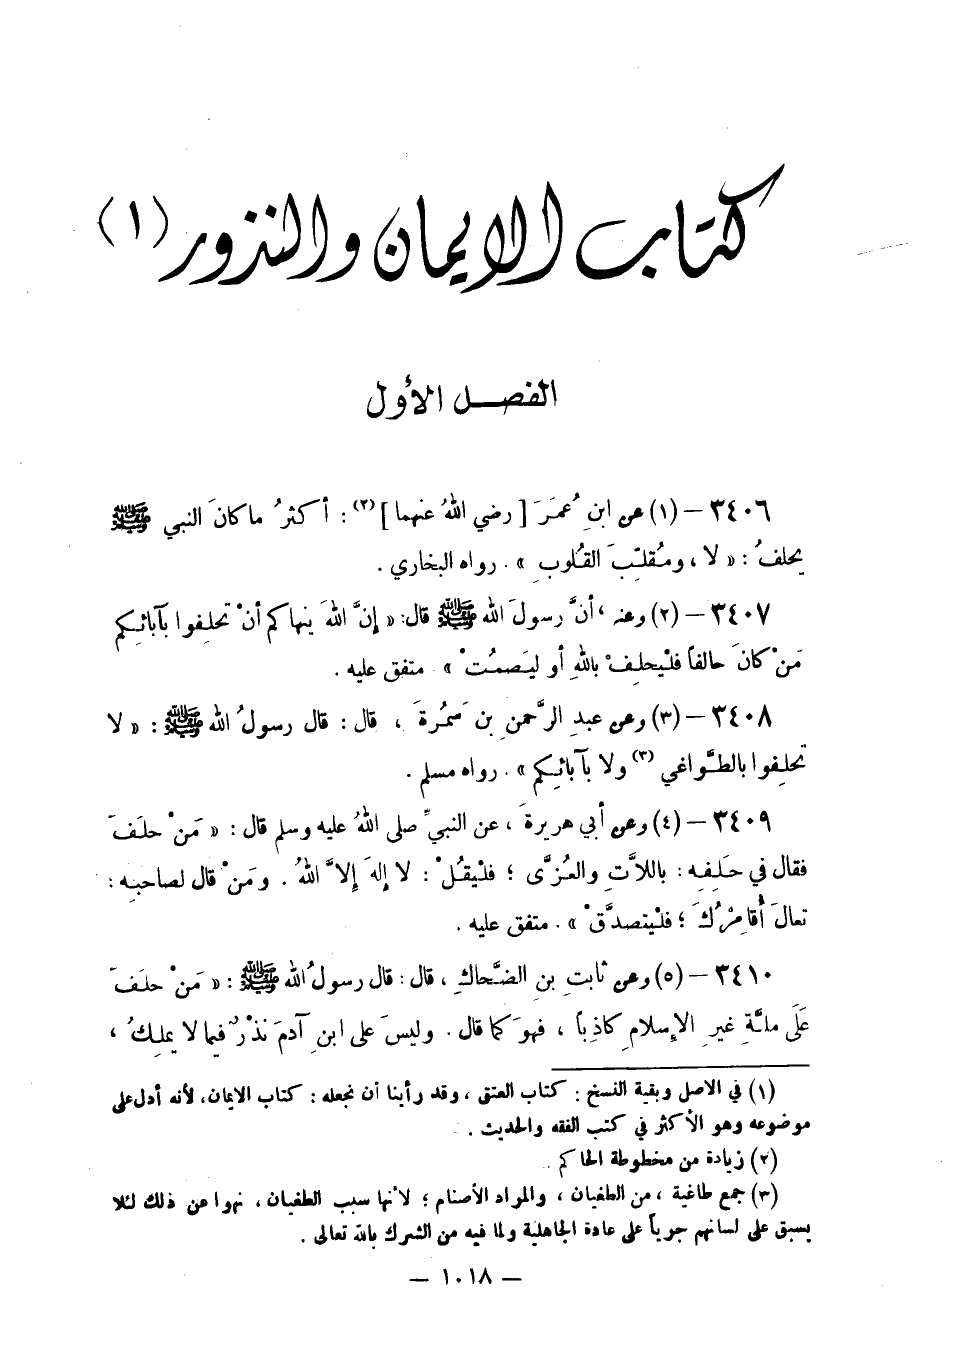 كتاب الايمان والنذور (١)
الفصل الأول
٣٤٠٦ – (١) عن ابنِ عُمَرَ [ رضي اللهُ عنهما ] (٢) : أكثرُ ما كانَ النبي ﷺ
يحلفُ : « لا ، ومُقلِّبَ القُلوبِ » . رواه البخاري .
٣٤٠٧ – (٢) وعنه ، أنَّ رسولَ الله ﷺ قال: « إنَّ اللهَ ينهاكم أنْ تحلِفوا بآبائِكم
مَنْ كانَ حالفاً فلْيحلِفْ باللهِ أو ليَصمُتْ » . متفق عليه .
٣٤٠٨ – (٣) وعن عبدِ الرَّحمنِ بن سَمُرةَ ، قال : قال رسولُ الله ﷺ : « لا
تحلِفوا بالطَّواغي (٣) ولا بآبائِكم » . رواه مسلم .
٣٤٠٩ – (٤) وعن أبي هريرةَ ، عن النبيِّ صلى اللهُ عليه وسلم قال : « مَنْ حلَفَ
فقال في حَلَفِه : باللاَّتِ والعُزَّى ؛ فلْيقُلْ : لا إلهَ إلاَّ اللهُ . ومَنْ قال لصاحبِه :
تعالَ أُقامِرْكَ ؛ فلْيتصدَّقْ » . متفق عليه .
٣٤١٠ – (٥) وعن ثابتِ بن الضَّحاكِ ، قال : قال رسولُ الله ﷺ : « مَنْ حلَفَ
عَلَى ملَّةِ غيرِ الإِسلامِ كاذِباً ، فهوَ كما قال . وليسَ على ابنِ آدمَ نذْرٌ فيما لا يملِكُ ،
(١) في الاصل وبقية النسخ : كتاب العتق ، وقد رأينا أن نجعله : كتاب الايمان، لأنه أدل على
موضوعه وهو الأكثر في كتب الفقه والحديث .
(٢) زيادة من مخطوطة الحاكم .
(٣) جمع طاغية ، من الطغيان ، والمواد الأصنام ؛ لأنها سبب الطغيان ، نهوا عن ذلك لئلا
يسبق على لسانهم جرياً على عادة الجاهلية ولما فيه من الشرك بالله تعالى .
— ١٠١٨ —